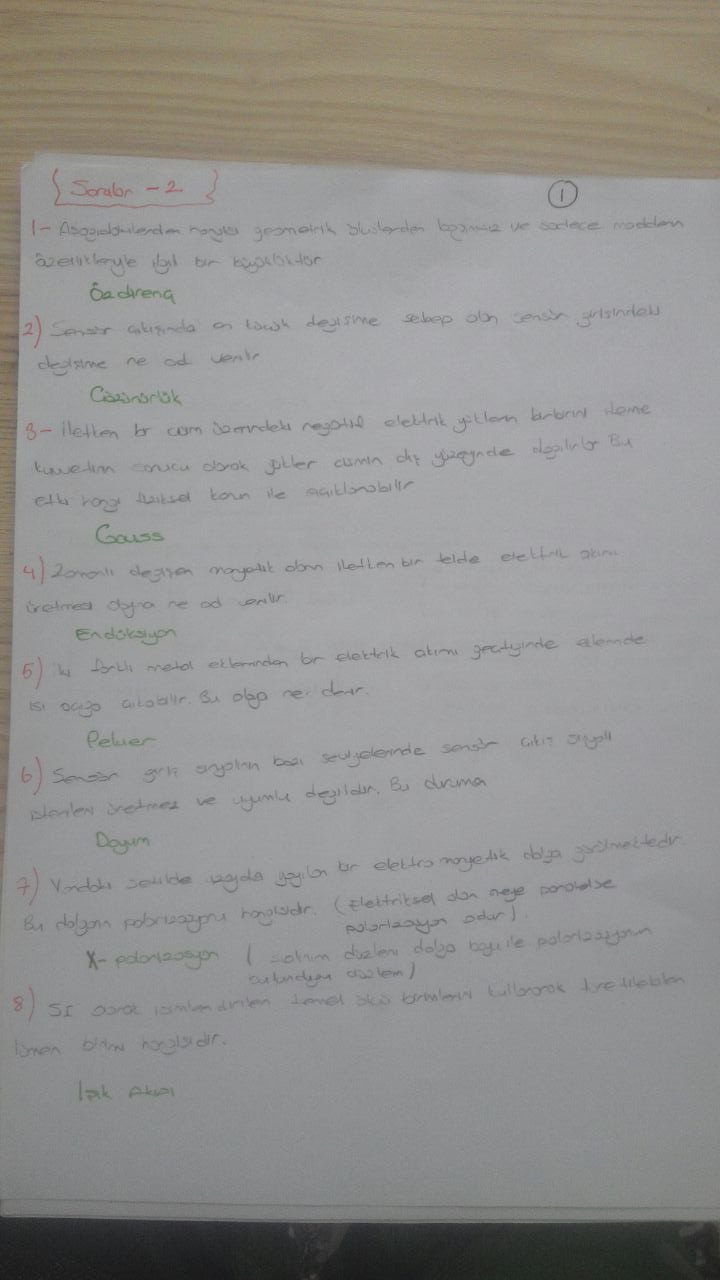 { Sorular - 2 }
1
1- Aşağıdakilerden hangisi geometrik oluslardan bağımsız ve sadece maddenin
özellikleriyle ilgili bir büyüklüktür
Özdirenç
2) Sensör çıkışında en küçük değişime sebep olan sensör girişindeki
değişime ne ad verilir
Çözünürlük
3- İletken bir cisim üzerindeki negatif elektrik yüklerin birbirini iteme
kuvvetinin sonucu olarak yükler cismin dış yüzeyinde dağılırlar Bu
etki hangi fiziksel kanun ile açıklanabilir
Gauss
4) Zamanla değişen manyetik alanın iletken bir telde elektrik akımı
üretmesi olayına ne ad verilir.
Endüksiyon
5) İki farklı metal eklerinden bir elektrik akımı geçtiğinde eklemde
ısı açığa çıkabilir. Bu olaya ne denir.
Peltier
6) Sensör giriş sinyalinin bazı seviyelerinde sensör çıkış sinyali
istenileni üretmez ve uyumlu değildir. Bu duruma
Doyum
7) Yandaki şekilde uzayda yayılan bir elektro manyetik dalga görülmektedir
Bu dalganın polarizasyonu hangisidir. (Elektriksel alan neye paralelse
polarizasyon odur).
X- polarizasyon ( salınım düzlemi dalga boyu ile polarizasyonun
bulunduğu düzlem)
8) SI olarak isimlendirilen temel ölçü birimlerini kullanarak türetilebilen
lümen birimi hangisidir.
Işık Akısı